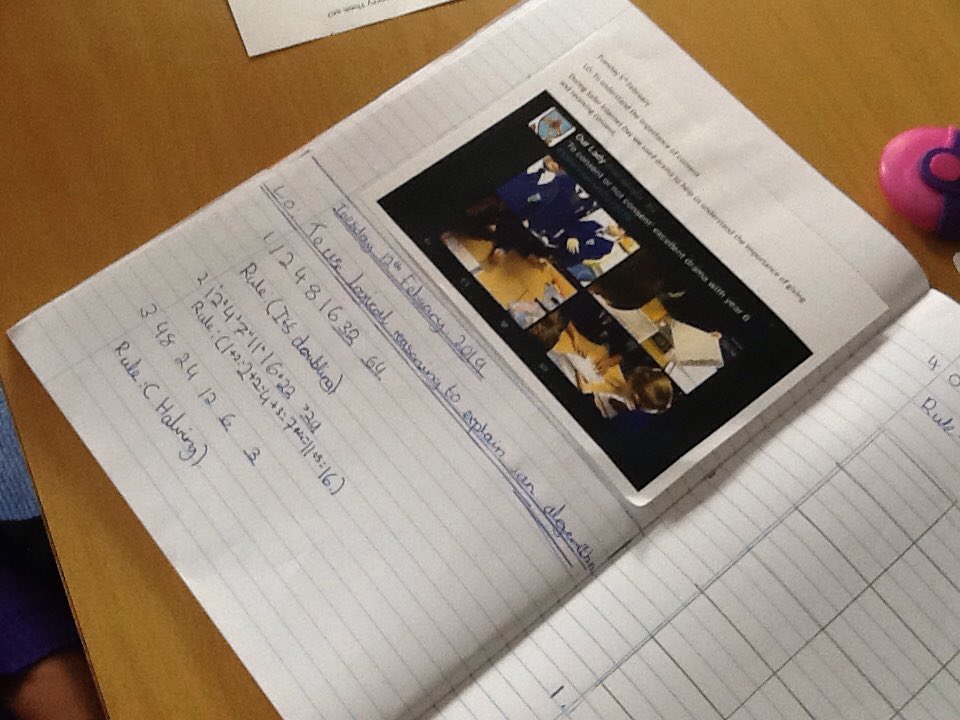 Tuesday 5th February
LO: To understand the importance of consent
During Safer Internet Day we used drama to help us understand the importance of giving
and receiving consent.
Our Lady
'To consent or not consent' excellent drama with year 6
Tuesday 12th February 2019
L.O. To use logical reasoning to explain an algorithm
1) 2 4 8 16 32 64
Rule: (Its doubling)
2 4 7 11 16 22
Rule: (1+2
3 48 24 12 6 3
Rule: (Halving).
4
Rule